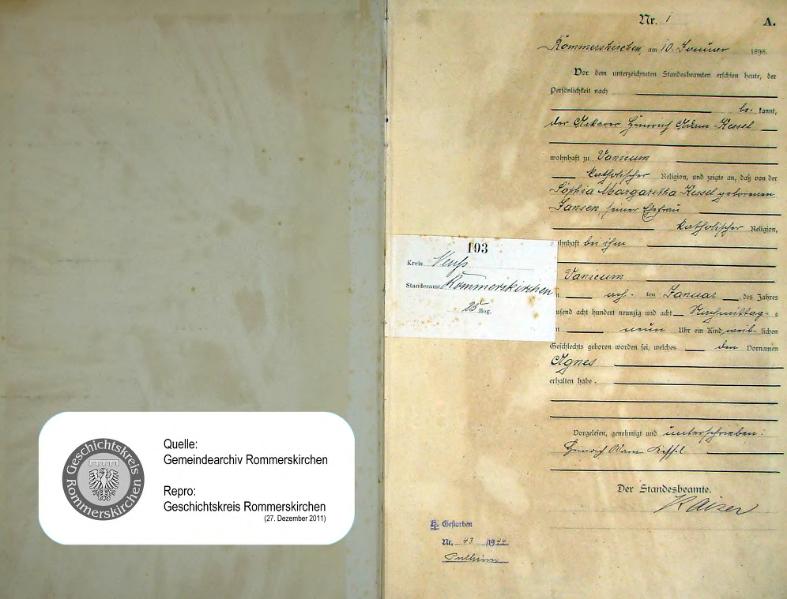 Nr. 1
A.
Rommerskirchen, am 10. Januar 1898.
Vor dem unterzeichneten Standesbeamten erschien heute, der
Persönlichkeit nach
be- kannt,
der Ackerer Heinrich Adam Kessel
wohnhaft zu Vanicum
katholischer Religion, und zeigte an, daß von der
Sophia Margaretha Kessel geborenen
Jansen seiner Ehefrau
katholischer Religion,
wohnhaft bei ihm
Vanicum
ach- ten Januar des Jahres
tausend acht hundert neunzig und acht Nachmittag- s
neun Uhr ein Kind weib- lichen
Geschlechts geboren worden sei, welches den Vornamen
Agnes
erhalten habe.
Vorgelesen, genehmigt und unterschrieben:
Heinrich Adam Kessel
Der Standesbeamte.
Kaiser
103
Kreis Neuß
Standesamt Rommerskirchen
Reg.
Gestorben
Nr. 43 /1944
Pulheim
Geschichtskreis Rommerskirchen
Quelle:
Gemeindearchiv Rommerskirchen
Repro:
Geschichtskreis Rommerskirchen
(27. Dezember 2011)